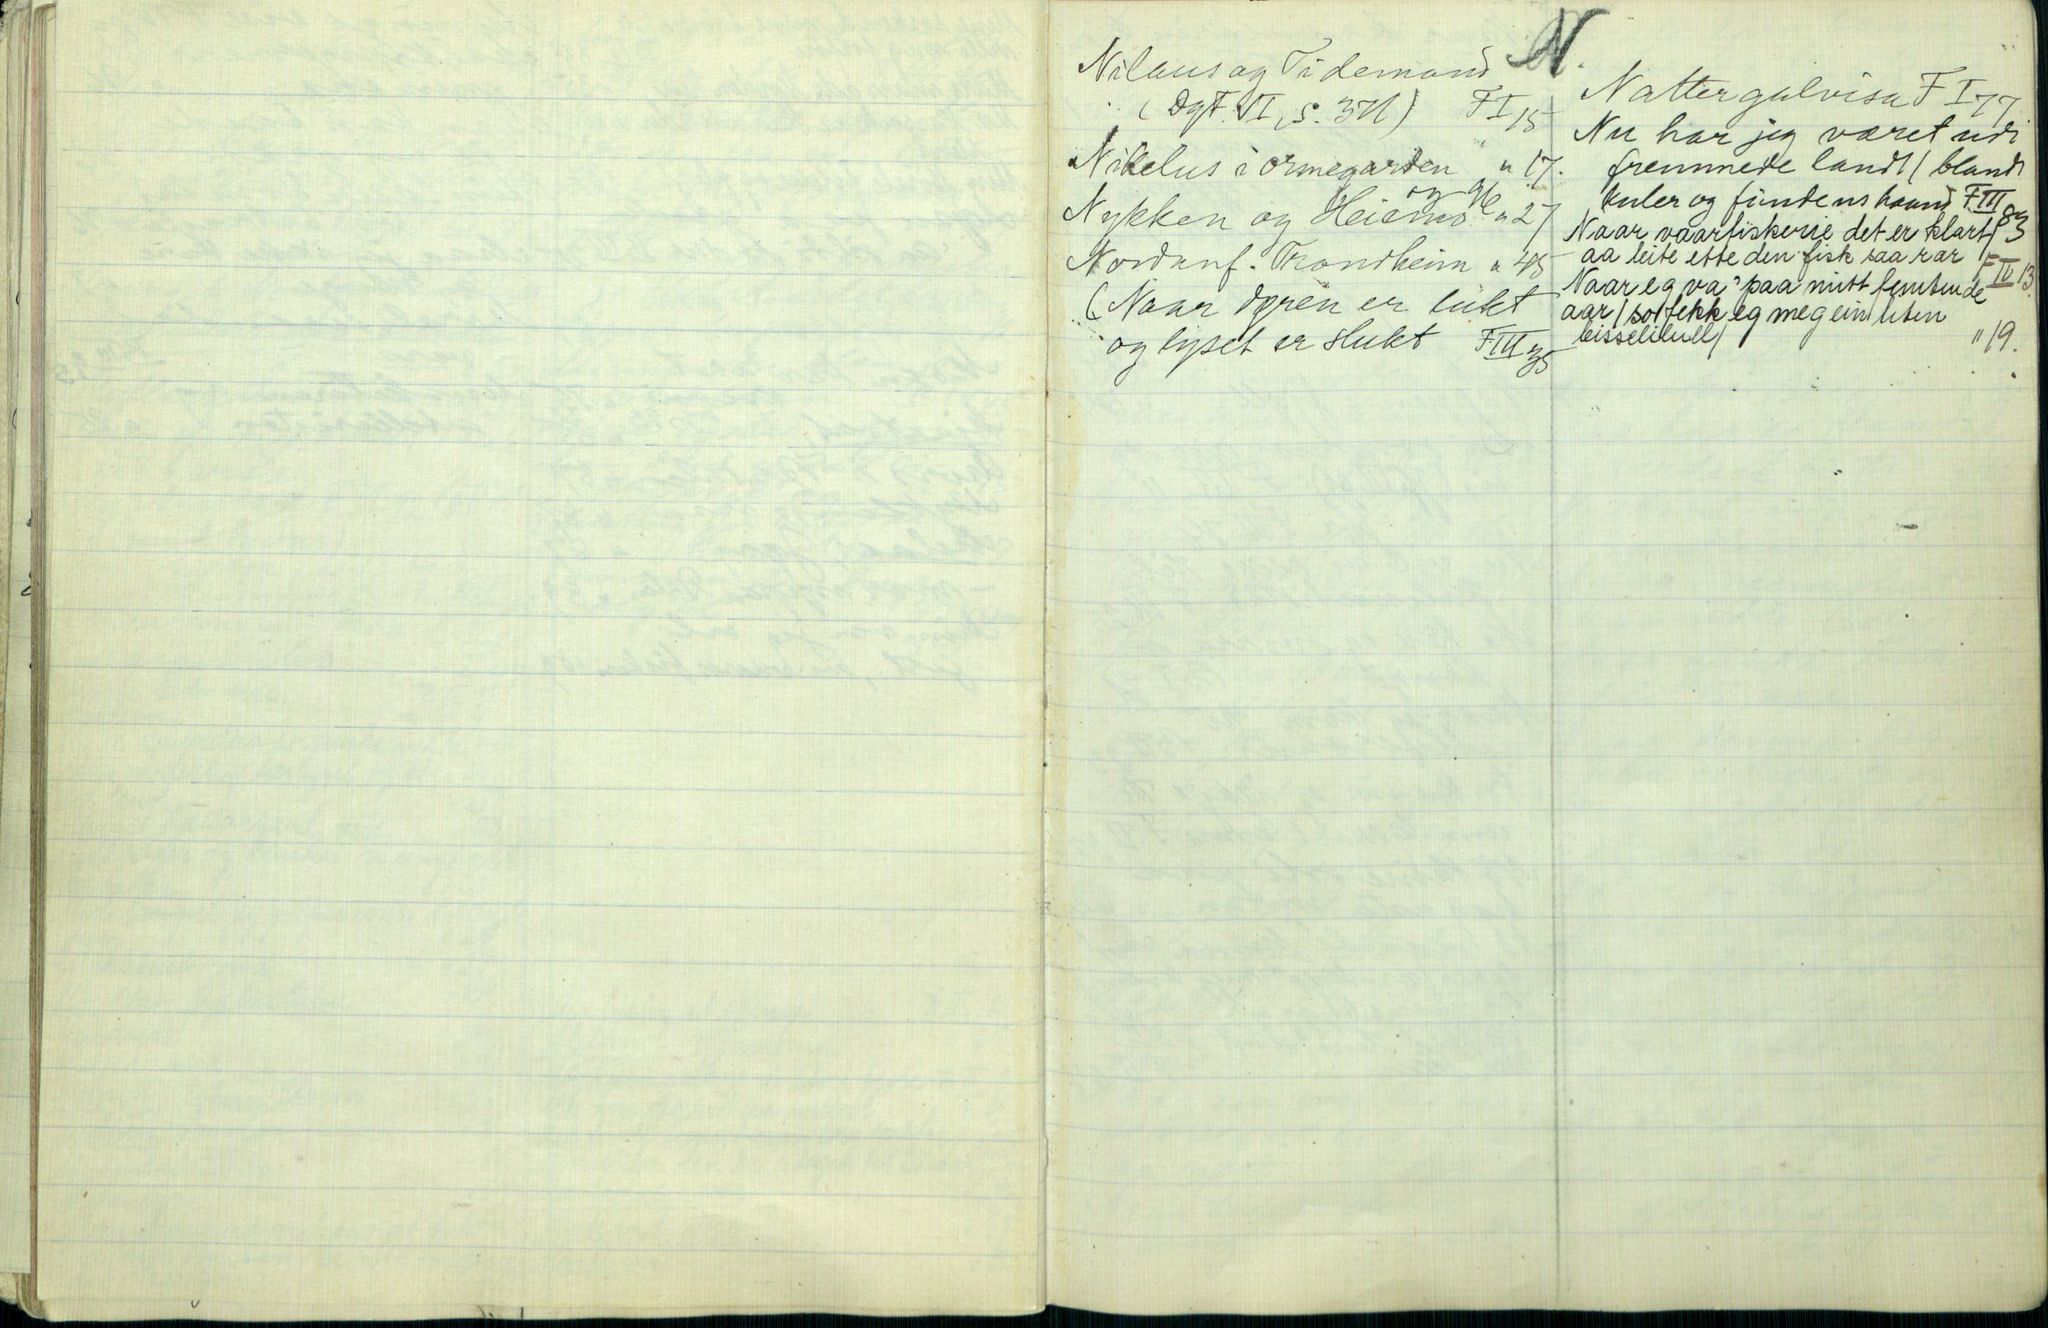 N.
Nilaus og Tidemand
(DgF. VI, S. 371) F I 15
Nikelus i ormegarden " 17.
og gl
Nykken og Heiemo " 27
Nordanf. Trondheim " 45
(Naar døren er lukt
og lyset er slukt F III 35
Nattergalvisa F I 77.
Nu har jeg været udi
fremmede land / blandt
kuler og findens haand F III 83
Naar vaarfiskerie det er klart /
aa leite ette den fisk saa rar F IV 13
Naar eg va' paa mitt femtende
aar / so fekk eg meg ein liten
" 19.